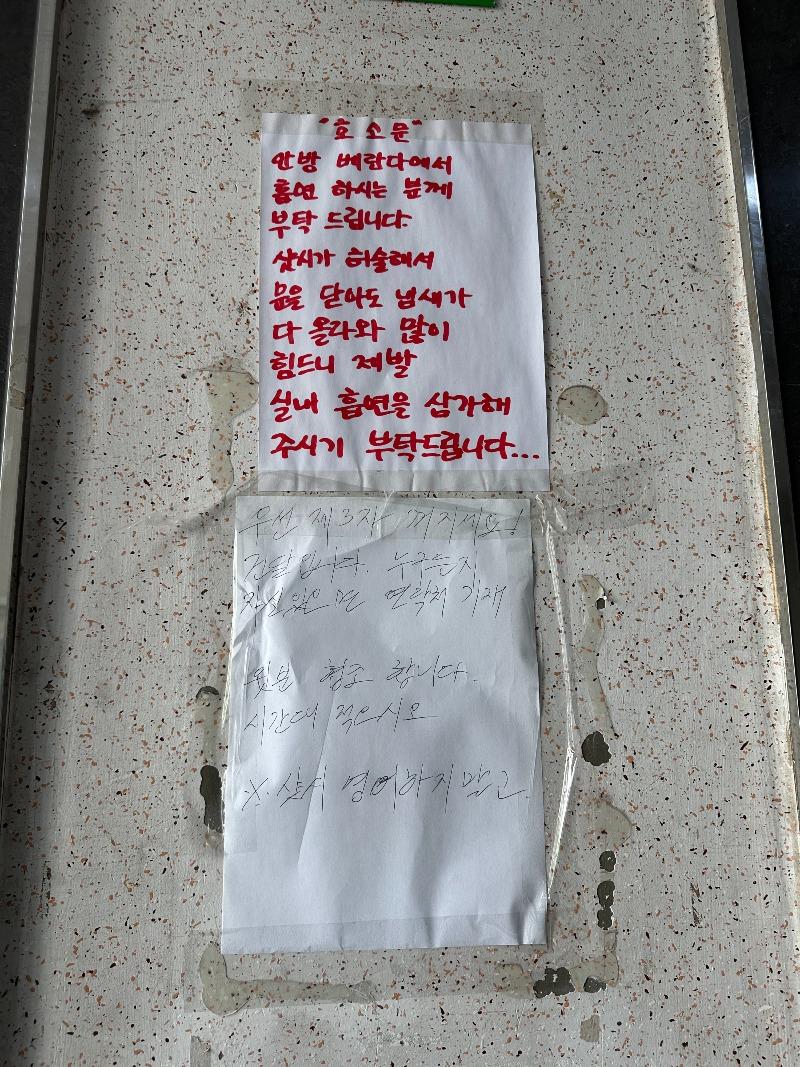 "호소문"
안방 베란다에서
흡연 하시는 분께
부탁 드립니다.
샷시가 허술해서
문을 닫아도 냄새가
다 올라와 많이
힘드니 제발
실내 흡연을 삼가해
주시기 부탁드립니다...
우선 제3자 꺼지세요!
건달입니다. 누구든지
자신있으면 연락처 기재
협조 합니다.
시간대 적으시오
※. 샷시 말고